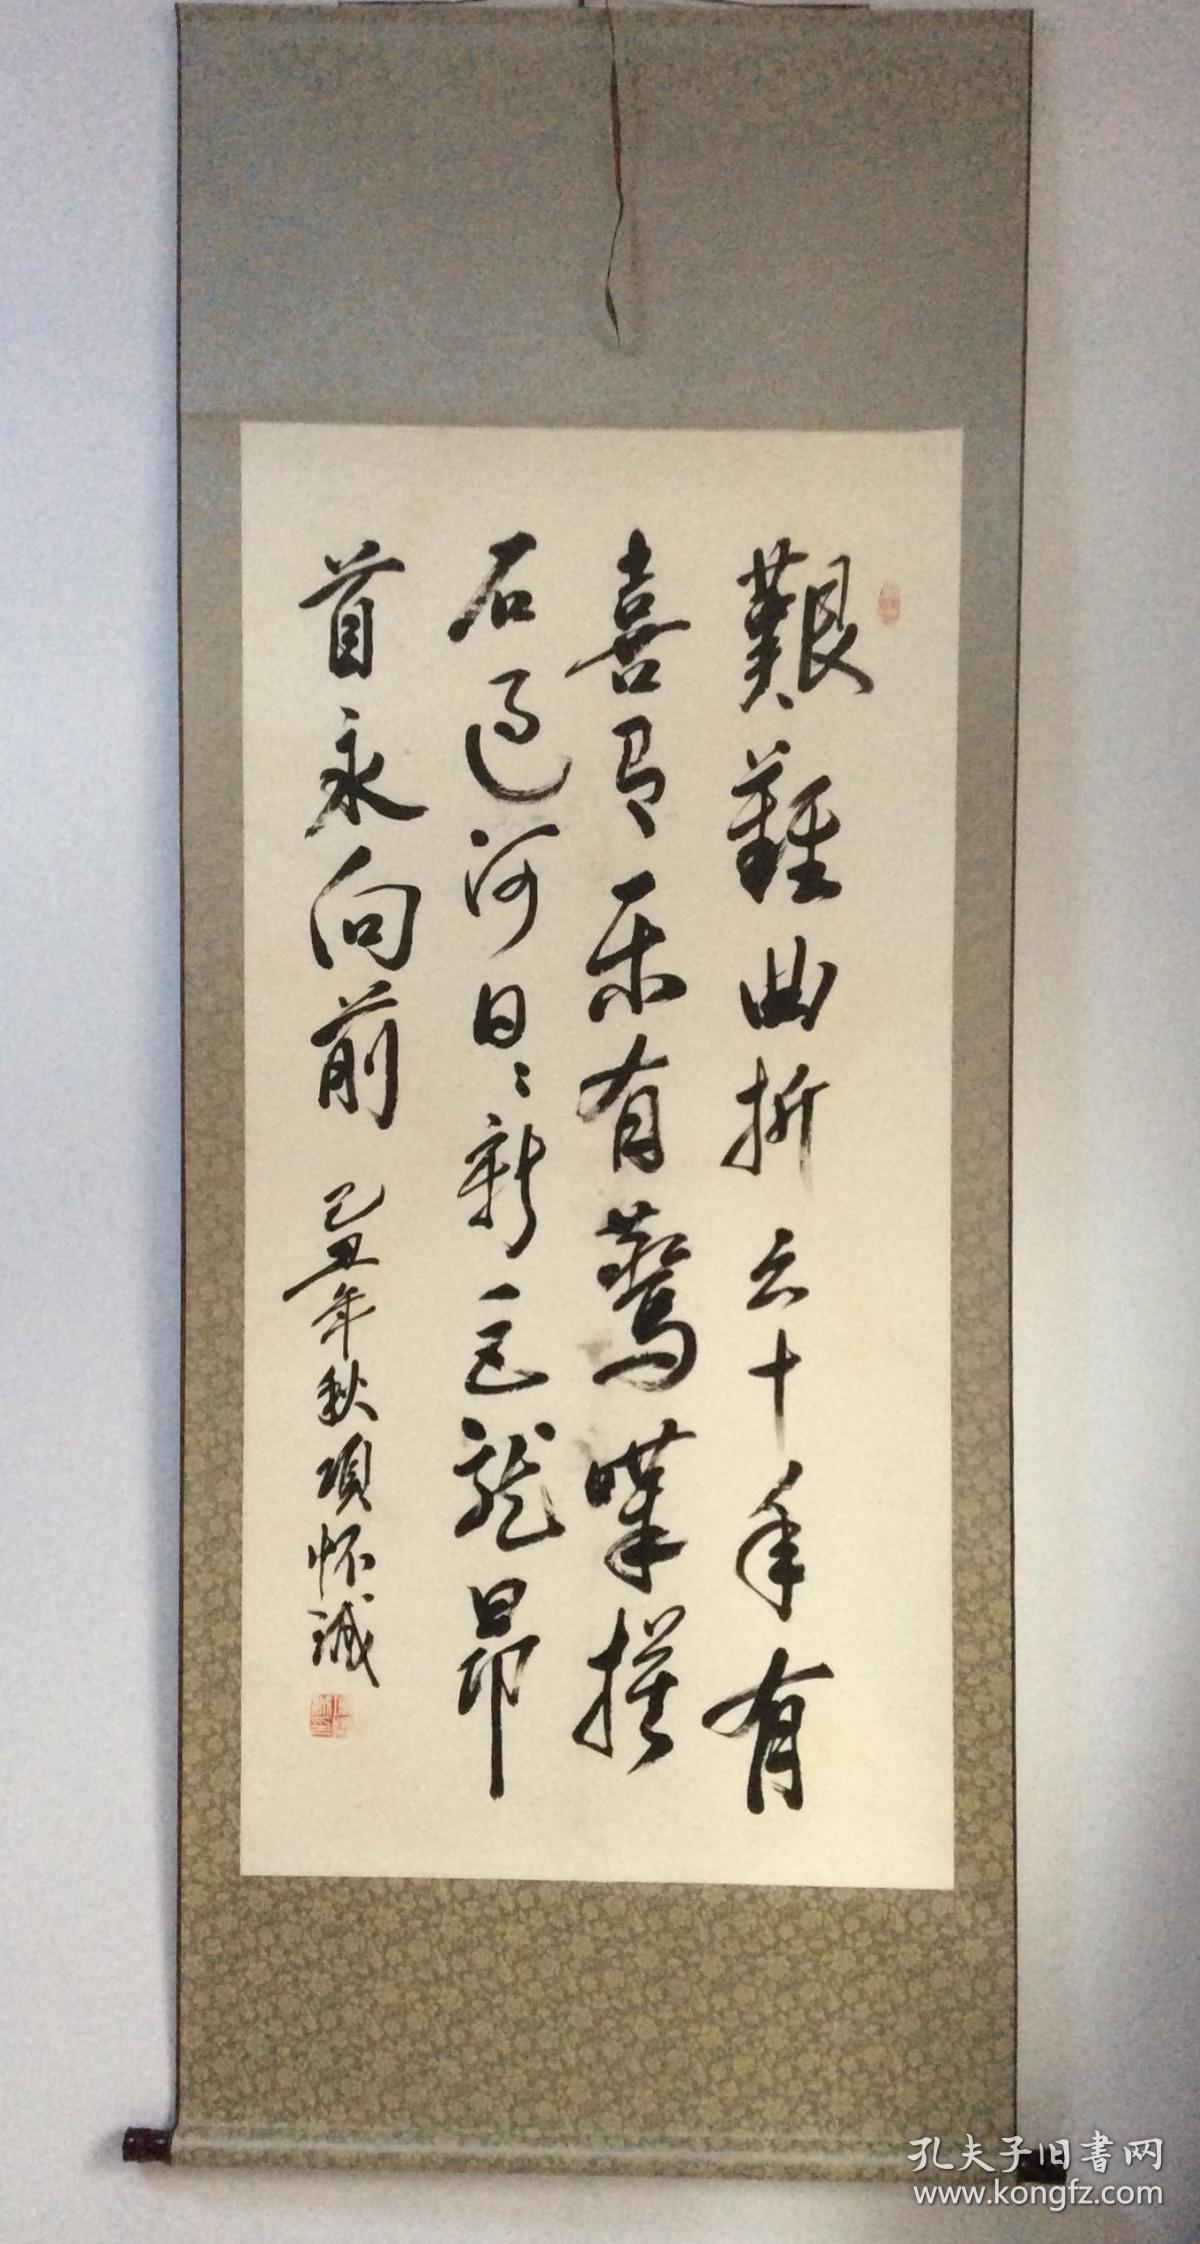 艱難曲折六十年有
喜有乐有驚嘆摸
石過河日々新巨龍昂
首永向前 己丑年秋項怀誠
孔夫子旧書网
www.kongfz.com